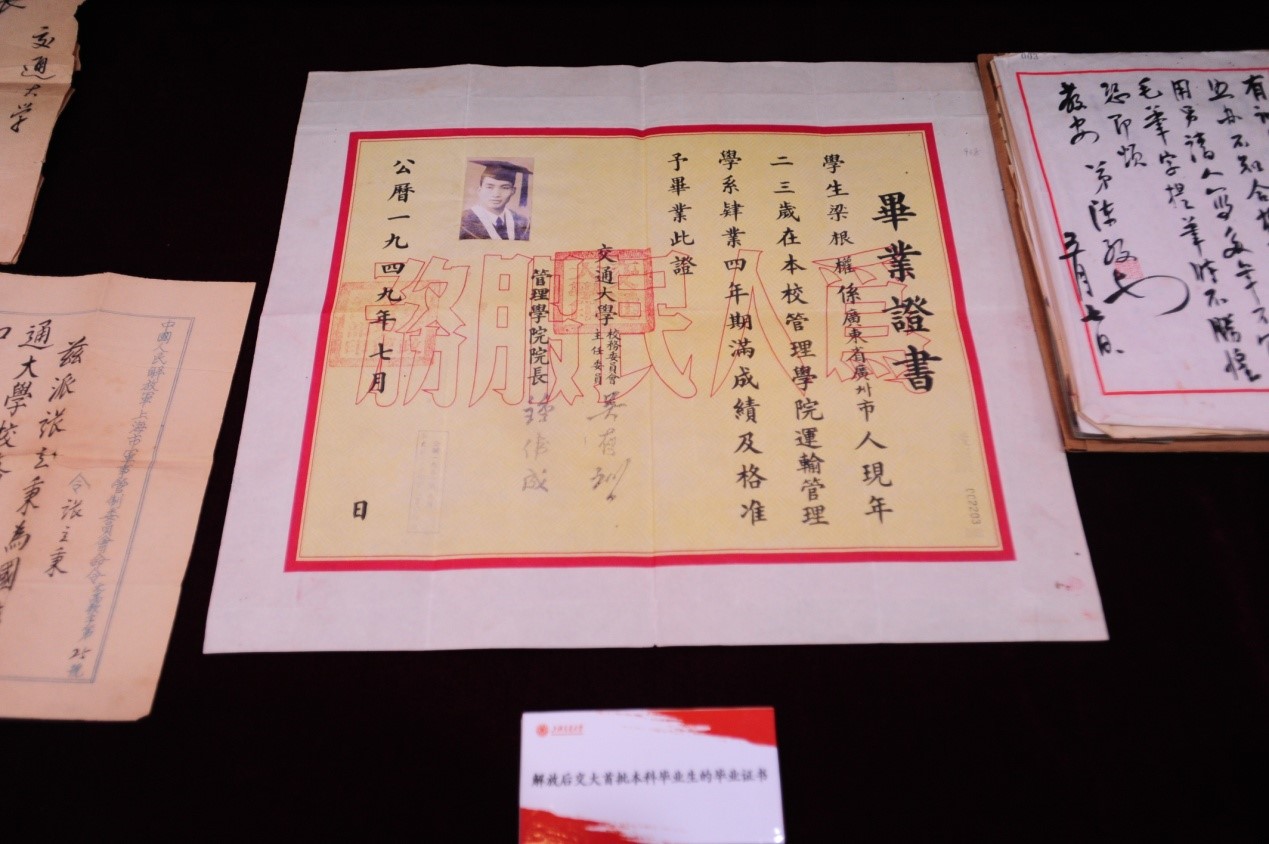 畢業證書
學生梁根權係廣東省廣州市人現年
二三歲在本校管理學院運輸管理
學系肄業四年期滿成績及格准
予畢業此證
交通大學校務委員會主任委員 吳有訓
管理學院院長 鍾偉成
公曆一九四九年七月 日
為人民服務
CC2203
解放后交大首批本科毕业生的毕业证书
上海交通大學
交通大学
中國人民解放軍上海市軍事管制委員會命令
25號
令張立秉
茲派張立秉為國
通大學校
003
用另請人寫多年不
毛筆字提筆時不勝惶
恐即頌
教安 弟陳
五月七日